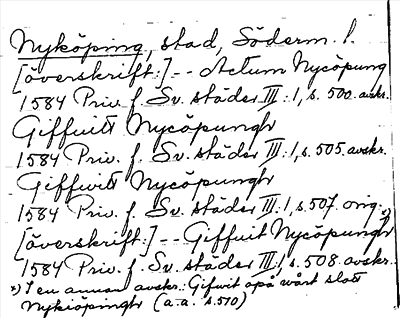 Nyköping, stad, Söderm. l.
[överskrift:] -- Actum Nycöpung
1584 Priv. f. Sv. städer III:1, s. 500. avskr.
Giffuitt Nycöpungh
1584 Priv. f. Sv. städer III:1, s. 505. avskr.
Giffwitt Nycöpungh
1584 Priv. f. Sv. städer III:1, s. 507. orig. x)
[överskrift:] -- Giffuit Nycöpungh
1584 Priv. f. Sv. städer III:1, s. 508. avskr.
x) I en annan avskr.: Gifvit opå wårt slott
Nykiöpingh (a.a. s. 510)